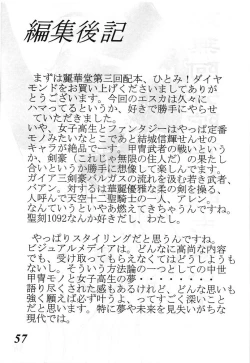 編集後記
まずは麗華堂第三回配本、ひとみ！ダイヤ
モンドをお買い上げくださいましてありが
とうございます。今回のエスカは久々に
ハマってるというか、好きで勝手にやらせ
ていただきました。
いや、女子高生とファンタジーはやっぱ定番
モノみたいなとこであると結城信輝せんせの
キャラが絶品です。甲冑武者の戦いというか
か、剣豪（これじゃ無限の住人だ）の果たし
合いというか勝手に想像して楽しんでます。
ガイア三剣豪バルガスの流れを汲む若き武者
バアン。対するは華麗優雅な柔の剣を操る、
人呼んで天空十二聖騎士の一人、アレン。
なんていうといやあ燃えてきちゃうんですね。
聖刻1092なんか好きだし、わたし。
やっぱりスタイリングだと思うんですね。
ビジュアルメディアは。どんなに高尚な内容
でも、受け取ってもらえなくてはどうしようも
ないし。そういう方法論の一つとしての中世
甲冑モノと女子高生の夢・・・・・・・・
語り尽くされた感もあるけれど、どんな思いも
強く願えば必ず叶うよ、ってすごく深いこと
だと思います。特に夢や未来を見失いがちな
現代では。
57